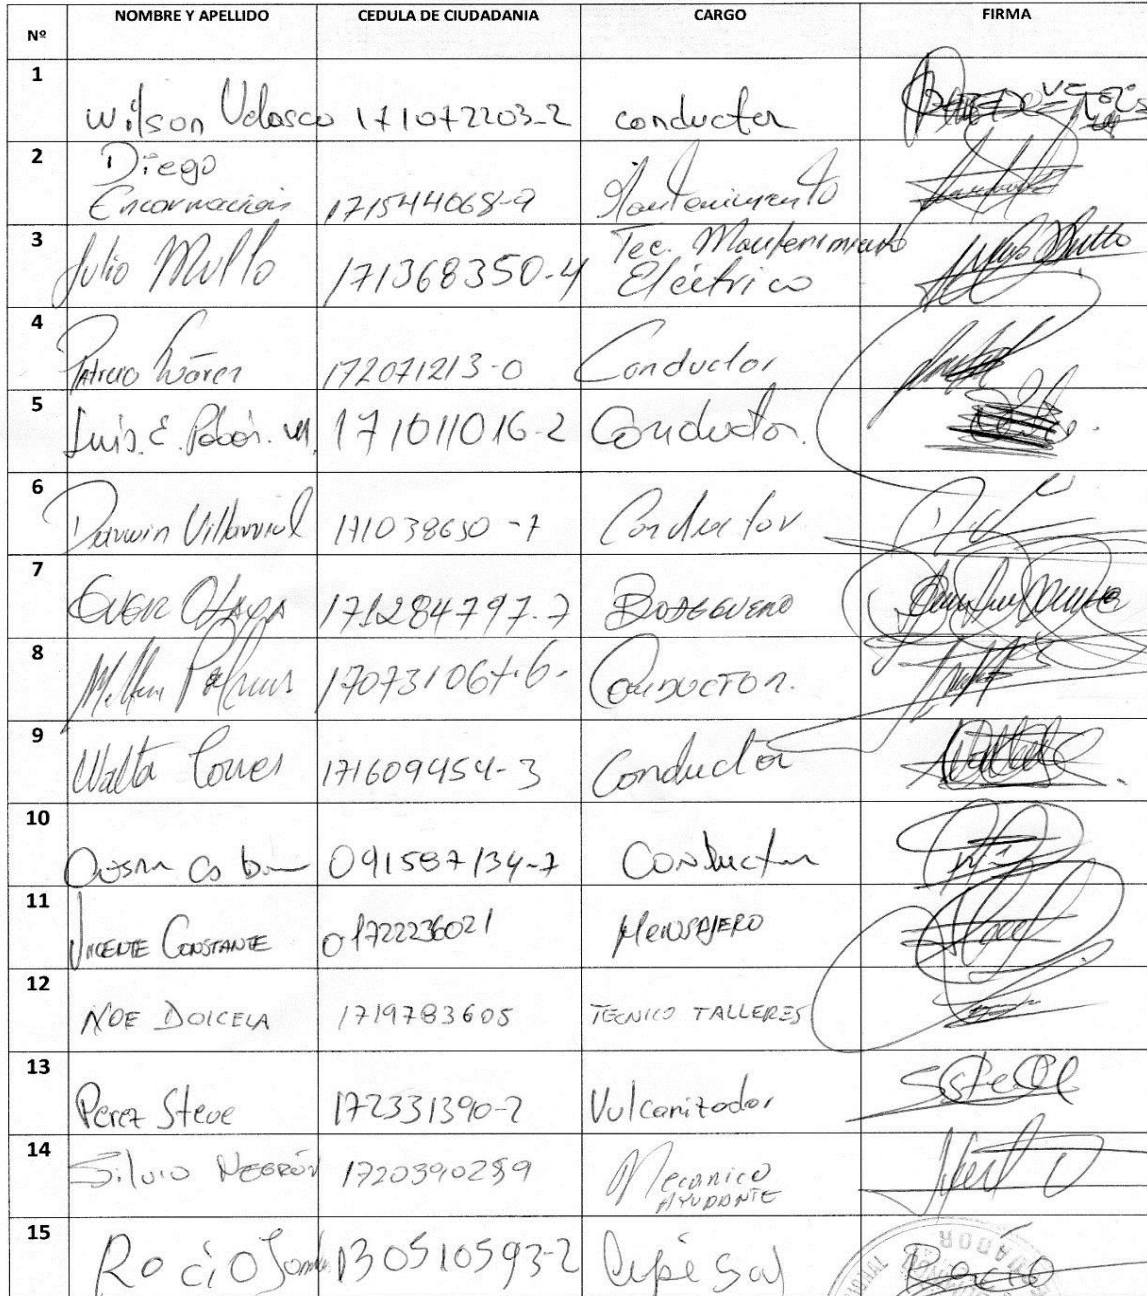 Nº NOMBRE Y APELLIDO CEDULA DE CIUDADANIA CARGO FIRMA
1 Wilson Velasco 171072203-2 conductor
2 Diego
Encarnación 171544068-9 Mantenimiento
3 Julio Mullo 171368350-4 Tec. Mantenimiento
Eléctrico Julio Mullo
4 172071213-0 Conductor
5 Luis. E. 171011016-2 Conductor.
6 Darwin Villarreal 171038650-7 Conductor
7 171284797-7 BODEGUERO
8 170731067-6- CONDUCTOR.
9 Walter Torres 171609454-3 Conductor
10 091587134-7 Conductor
11 VICENTE CONSTANTE 01722236021 MENSAJERO
12 NOE DOICELA 1719783605 TECNICO TALLERES
13 Perez Steve 172331390-2 Vulcanizador
14 Silvio NEGRÓN 1720390289 Mecanico
AYUDANTE
15 Rocio 130510593-2 Rocio